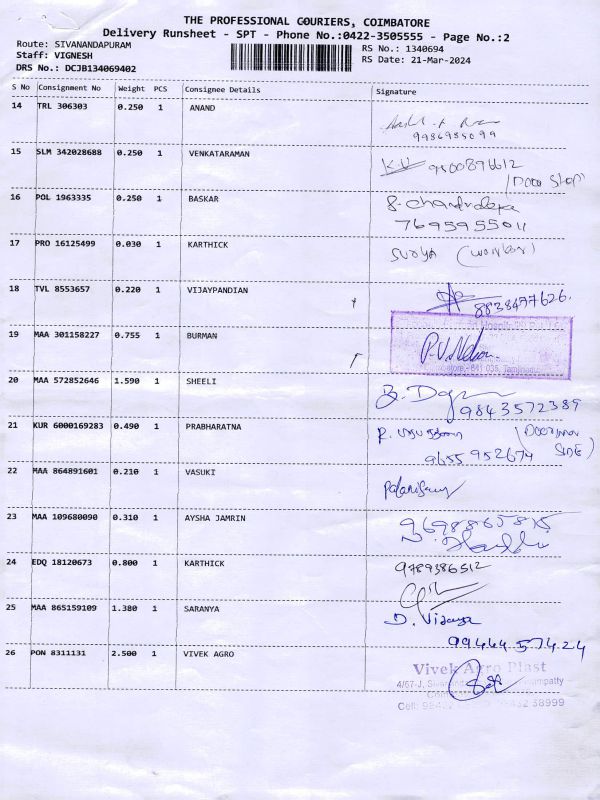 THE PROFESSIONAL COURIERS, COIMBATORE
Delivery Runsheet - SPT - Phone No.:0422-3505555 - Page No.:2
Route: SIVANANDAPURAM
RS No.: 1340694
Staff: VIGNESH
RS Date: 21-Mar-2024
DRS No.: DCJB134069402
S No Consignment No Weight PCS Consignee Details Signature
14 TRL 306303 0.250 1 ANAND
9986955099
15 SLM 342028688 0.250 1 VENKATARAMAN
K.V
(Door Shop)
16 POL 1963335 0.250 1 BASKAR
7695955011
17 PRO 16125499 0.030 1 KARTHICK
Surya (worker)
18 TVL 8553657 0.220 1 VIJAYPANDIAN
8838477626.
19 MAA 301158227 0.755 1 BURMAN
20 MAA 572852646 1.590 1 SHEELI
9843572389
21 KUR 6000169283 0.490 1 PRABHARATNA
9655952674
SIDE)
22 MAA 864891601 0.210 1 VASUKI
Palanisamy
23 MAA 109680090 0.310 1 AYSHA JAMRIN
24 EDQ 18120673 0.800 1 KARTHICK
9789386512
25 MAA 865159109 1.380 1 SARANYA
D. Vijaya
9944457424
26 PON 8311131 2.500 1 VIVEK AGRO
Vivek Agro Plast
4/67-J,
Cell: 38999